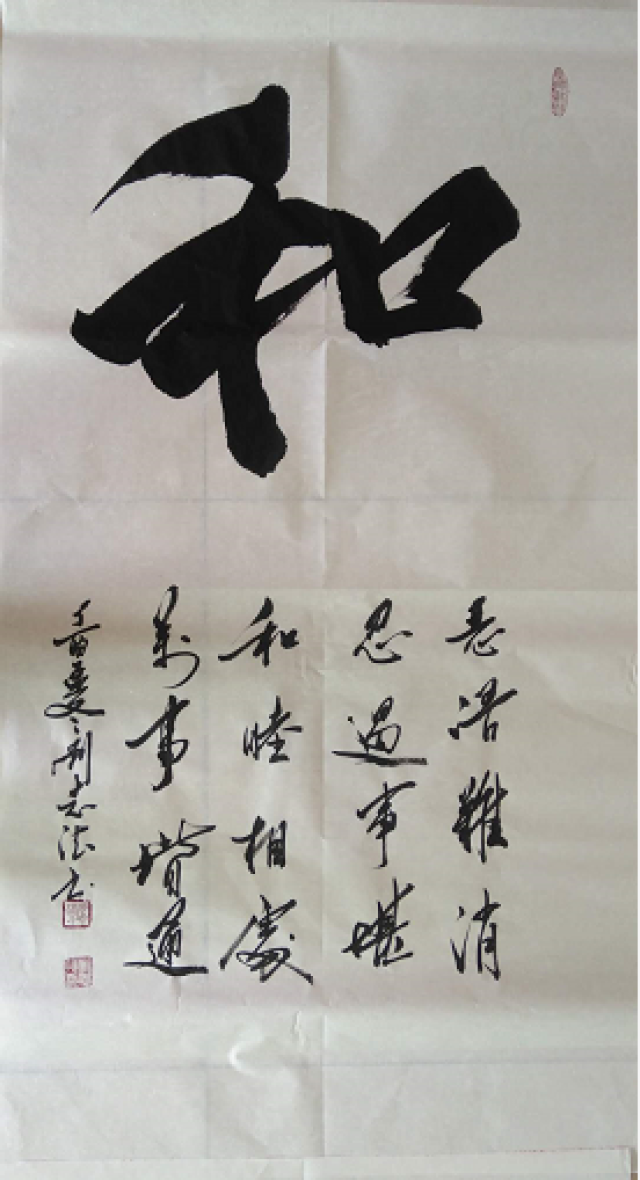 和
恶语難消
忍過事堪
和睦相處
萬事諧通
丁酉夏刘志法书